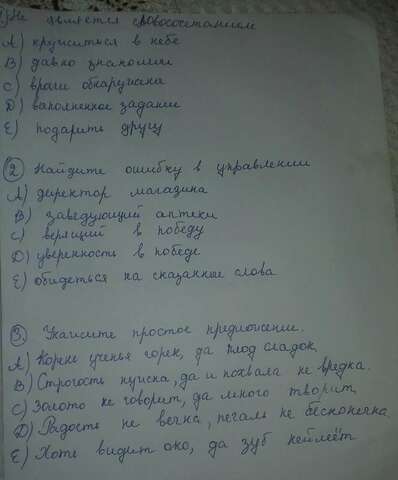 1) Не является словосочетанием
A) кружиться в небе
B) давно знакомы
C) враги обнаружены
D) выполненное задание
E) подарить другу
2) Найдите ошибку в управлении
A) директор магазина
B) заведующий аптеки
C) верящий в победу
D) уверенность в победе
E) обидеться на сказанные слова
3) Укажите простое предложение.
A) Корень ученья горек, да плод сладок
B) Строгость нужна, да и похвала не вредна.
C) Золото не говорит, да много творит
D) Радость не вечна, печаль не бесконечна
E) Хоть видит око, да зуб неймёт